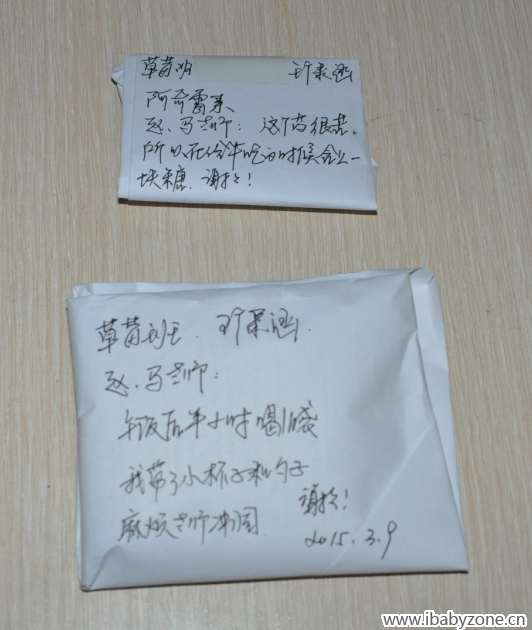 草莓班 
阿奇霉素
赵、马老师：这个药很苦。
所以在给她吃的时候含上一
块糖.谢谢！
草莓班.
赵、马老师：
午饭后半小时喝1袋
我带了小杯子和勺子
麻烦老师冲调
谢谢！
2015.3.9
www.ibabyzone.cn